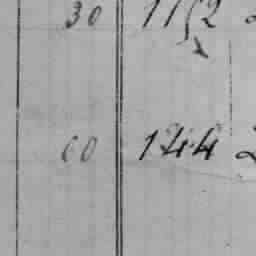 30 1152
60 144 2